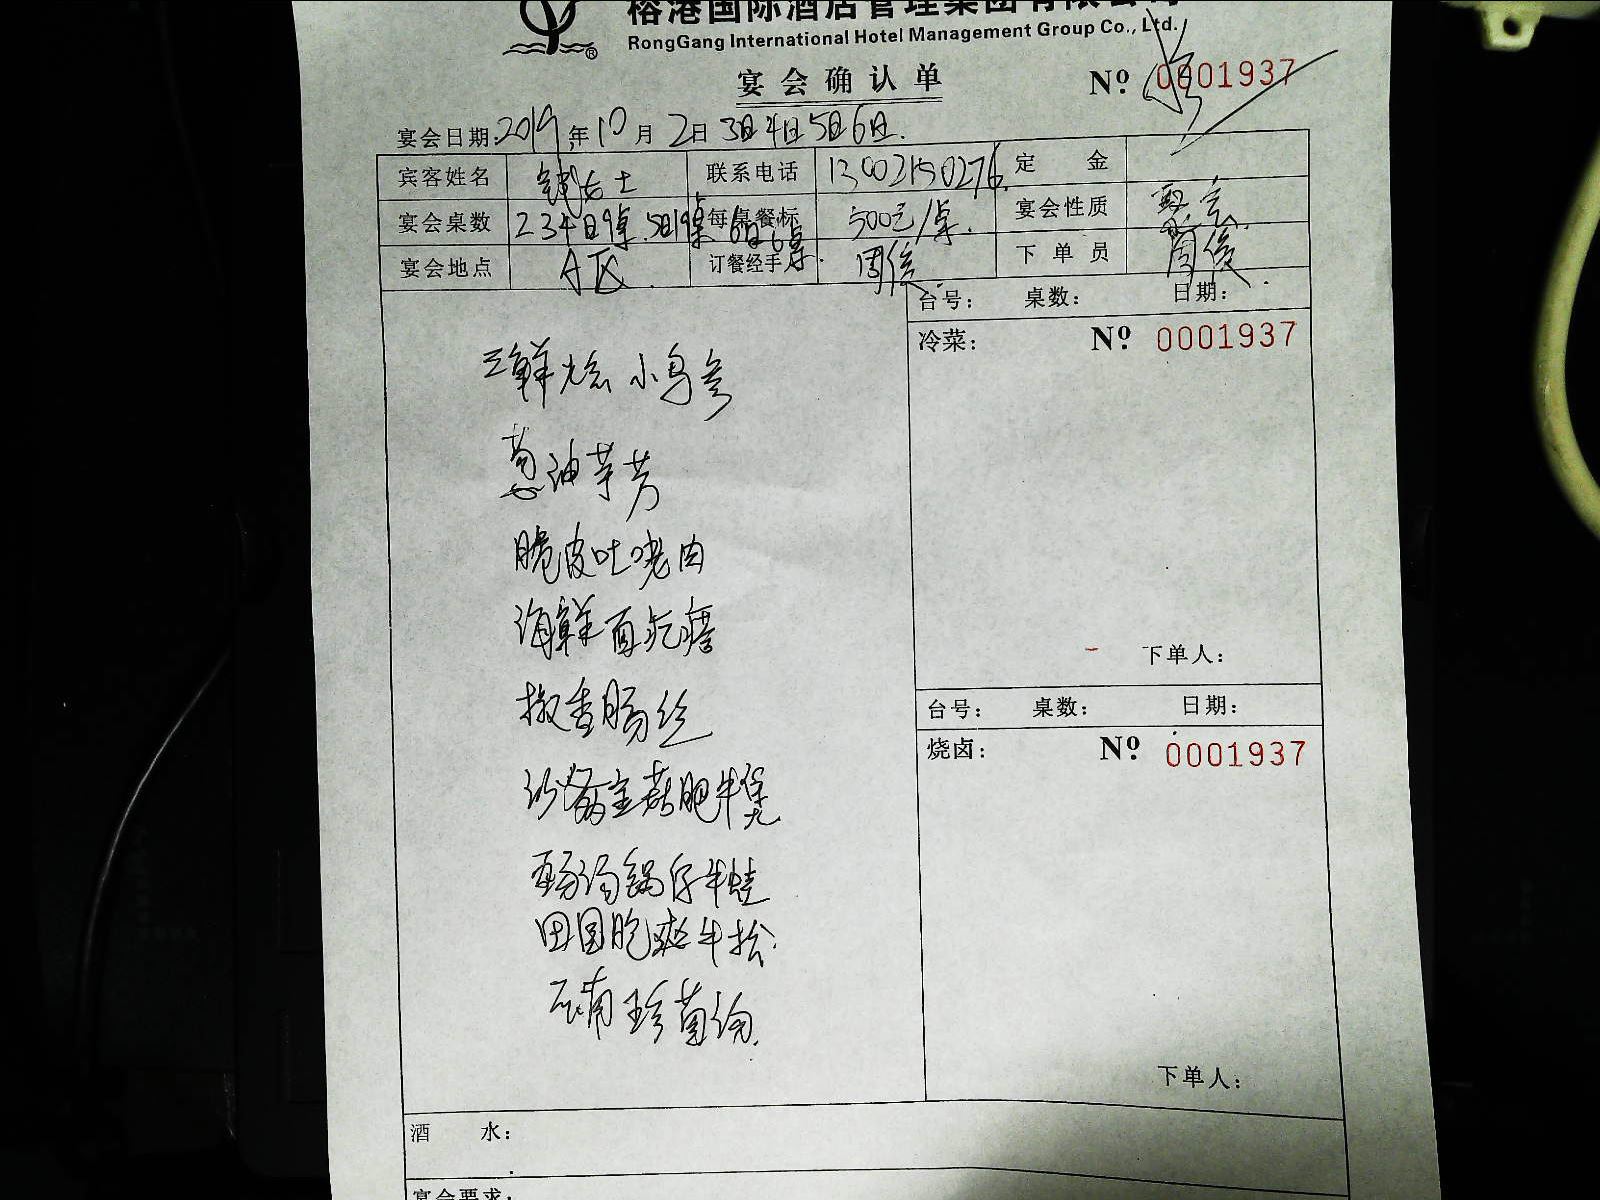 榕港国际酒店管理集团有限公司
RongGang International Hotel Management Group Co., Ltd.
宴会确认单 № 0001937
宴会日期:2019年10月2日3日4日5日6日.
宾客姓名 钱女士 联系电话 13002150276. 定金
宴会桌数 234日9桌.5日9桌.6日6桌. 每桌餐标 500元/桌. 宴会性质 聚会.
宴会地点 A区. 订餐经手 周俊. 下单员 周俊.
台号: 桌数: 日期:
冷菜: № 0001937
三鲜烩小乌参
葱油芋艿
脆皮吐咾肉
海鲜面疙瘩
椒香肠丝
沙爹金菇肥牛煲
汤锅仔牛蛙
田园脆爽牛松
珍菌汤.
下单人:
台号: 桌数: 日期:
烧卤: № 0001937
下单人:
酒水:
宴会要求: